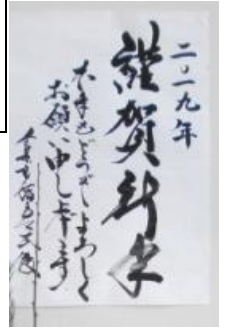 二〇一九年
謹賀新年
本年もどうぞよろしく
お願い申し上げます